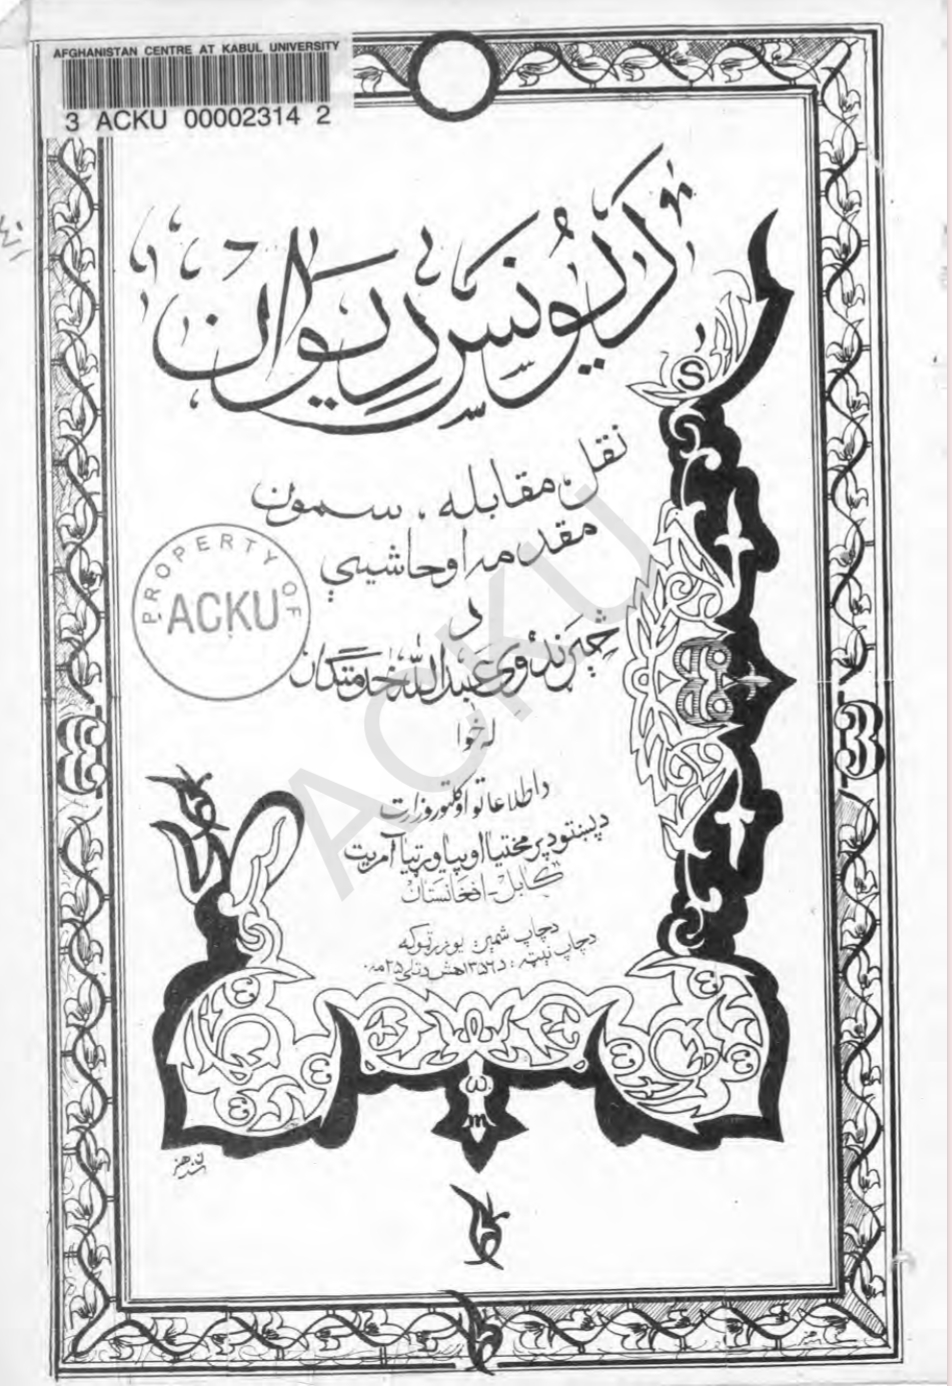 AFGHANISTAN CENTRE AT KABUL UNIVERSITY
3 ACKU 00002314 2
د یونس دیوان
نقل، مقابله، سمون
مقدمه او حاشیې
د
څېړندوی عبدالله خدمتگار
له خوا
د اطلاعاتو او کلتور وزارت
د پښتو د پرمختیا او پیاوړتیا آمریت
کابل - افغانستان
د چاپ شمېر: یو زر ټوکه
د چاپ نېټه: د ۱۳۵۶ هش د تلې ۲۵ مه.
PROPERTY OF
ACKU
ACKU